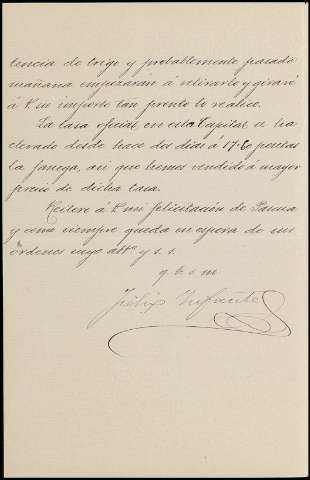 tencia de trigo y probablemente pasado
mañana empezarán á retirarlo y giraré
á V su importe tan pronto lo realice.
La tasa oficial en esta Capital se ha
elevado desde hace dos días á 17'60 pesetas
la fanega, así que hemos vendido á mayor
precio de dicha tasa.
Reitero á V mi felicitación de Pascua
y como siempre queda en espera de sus
órdenes suyo affº y s. s.
q b s m
Félix Infante